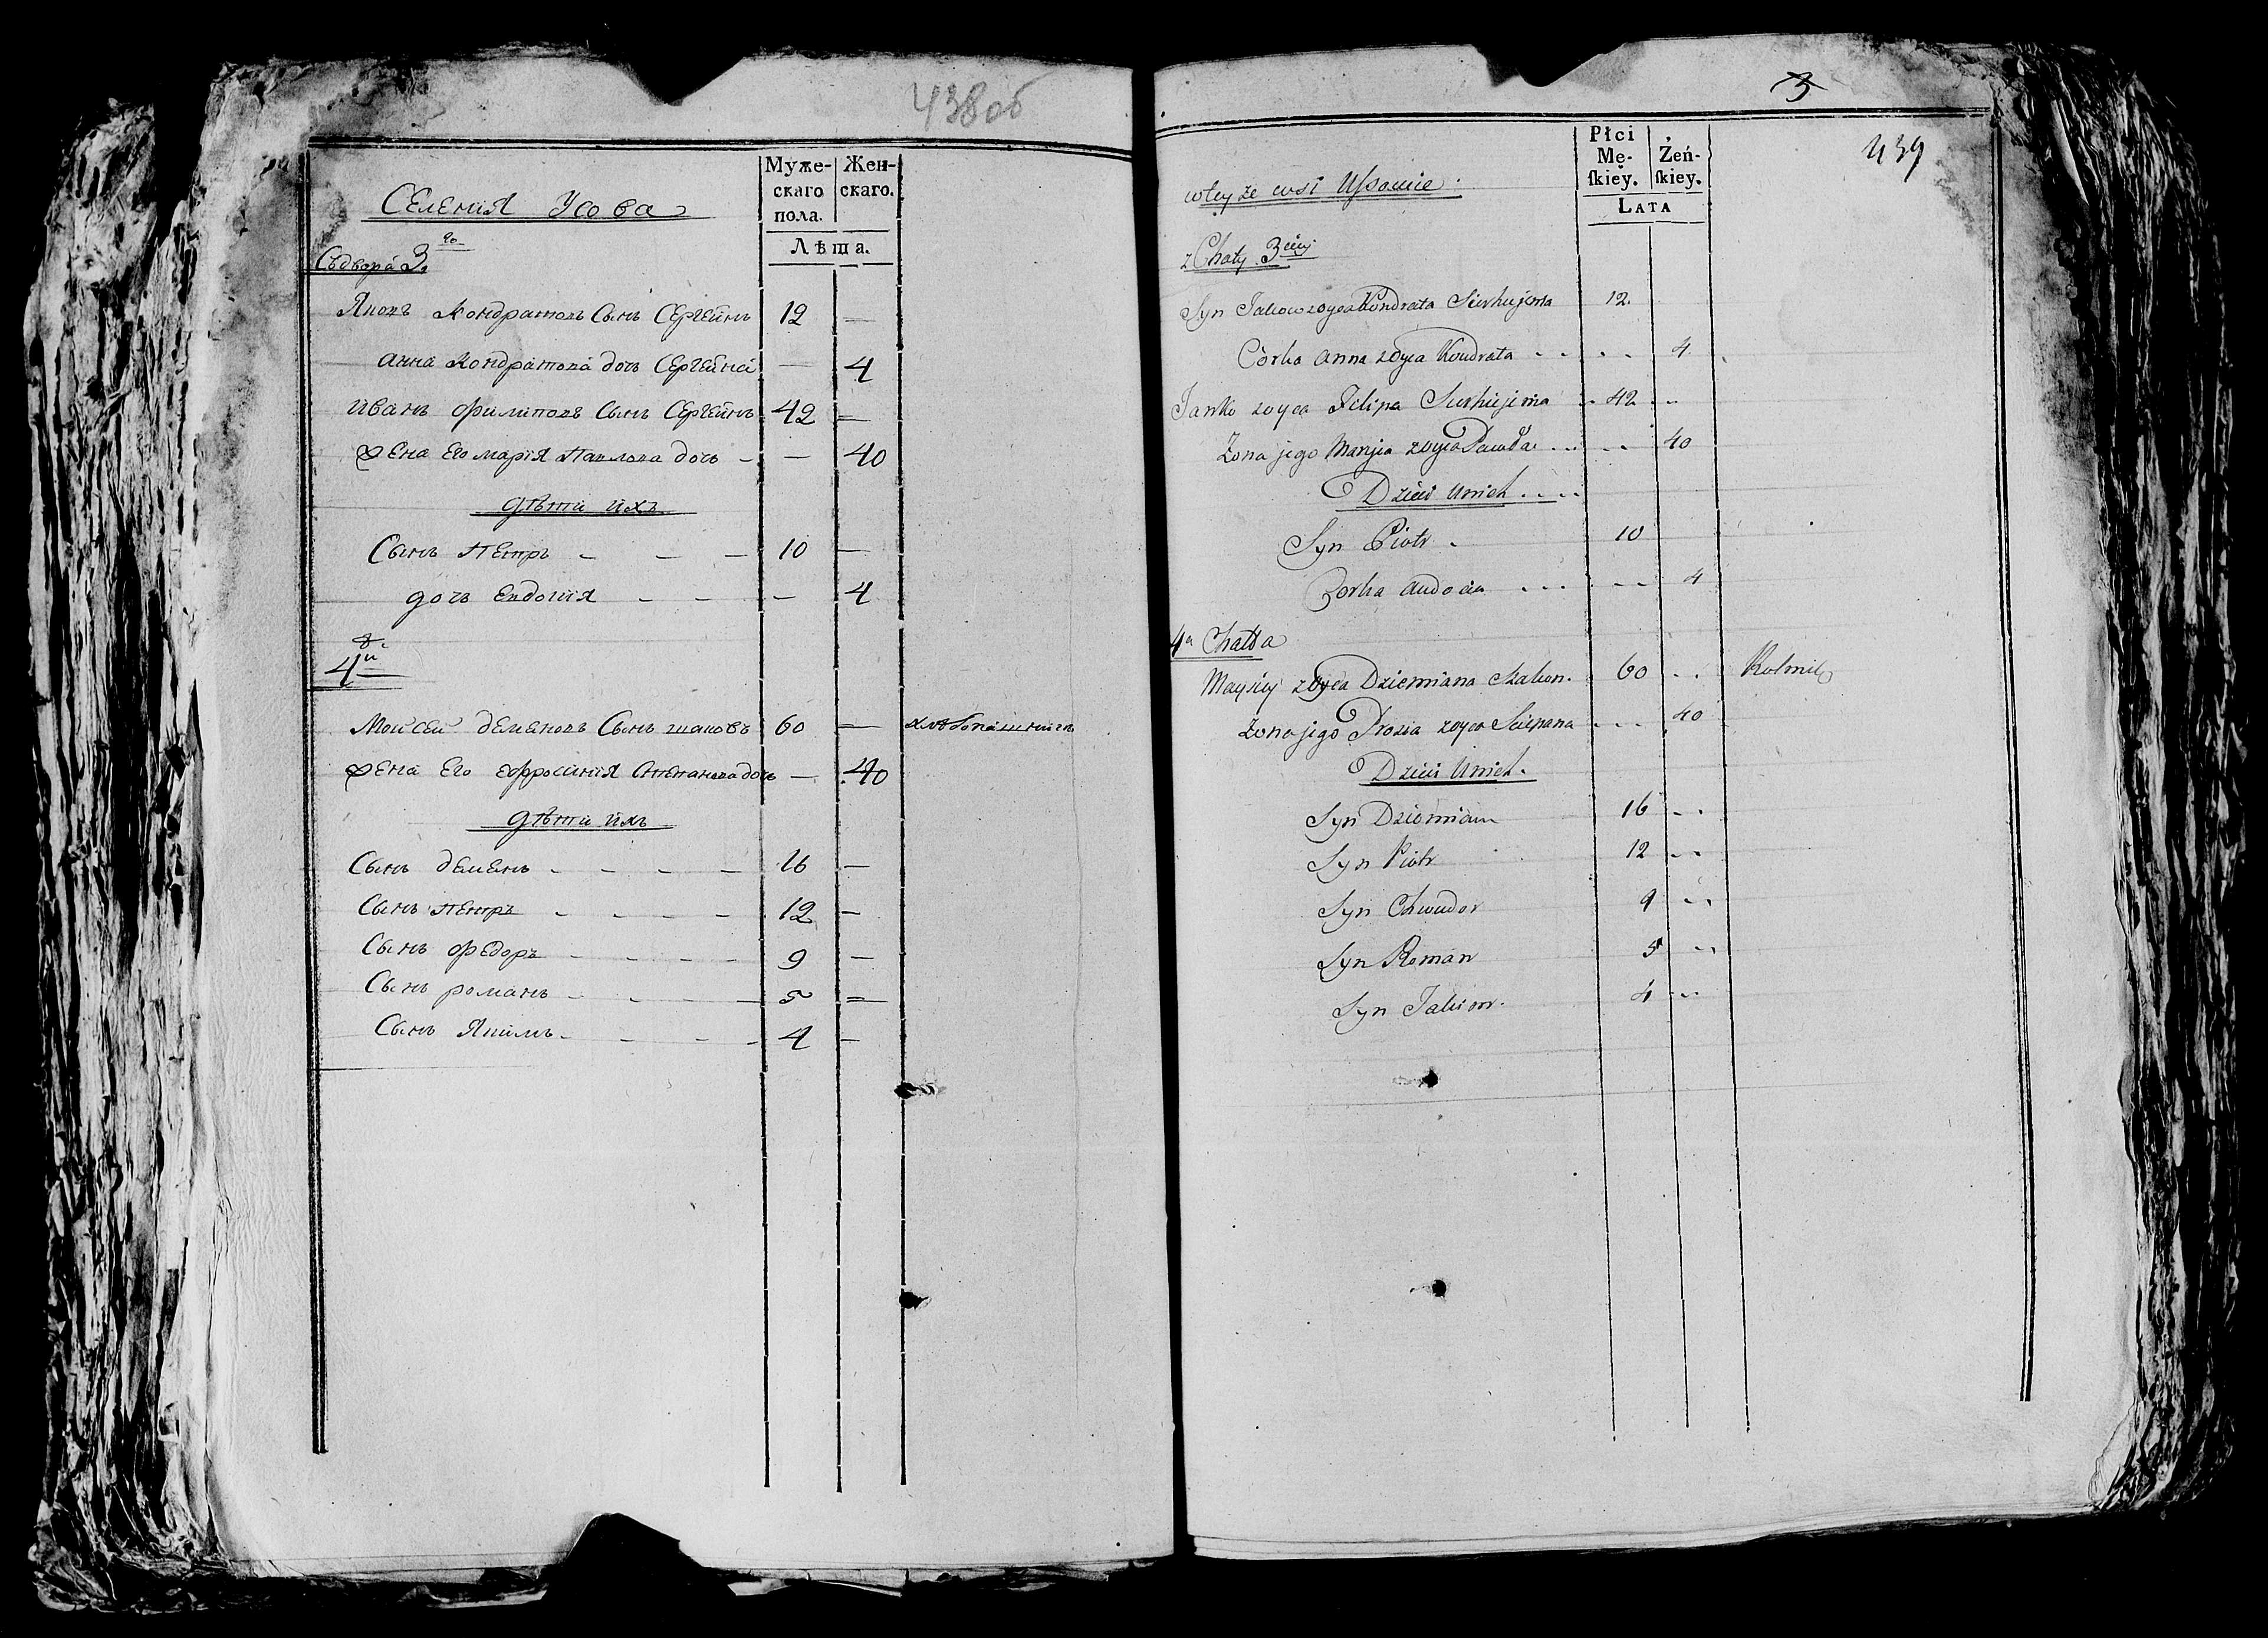 438об
Муже-
скаго
пола.
Жен-
скаго.
Лѣта.
Селенія Усова
Съ двора 3.го
Яковъ Кондратовъ Сынъ Сергейнъ 12 —
анна Кондратова дочь Сергейна — 4
иванъ филиповъ Сынъ Сергейнъ 42 —
жена Его марія Павлова дочь — — 40
дѣти ихъ
Сынъ Петръ — — — 10 —
дочь Евдокія — — — 4
4й
Мойсей деменовъ Сынъ шаковъ 60 — хлѣбопашникъ
жена Его ефросинія Степанова дочь — 40
дѣти ихъ
Сынъ деменъ - - - - 16 —
Сынъ петръ - - - - 12 —
Сынъ федоръ - - - - 9 —
Сынъ романъ - - - - 5 =
Сынъ Якимъ - - - - 4 —
3
439
Płci
Mę-
skiey.
Żeń-
skiey.
LATA
w tey że wsi Ussowie.
z Chaty 3ciey
Syn Jakow z oyca Kondrata Sierhiejewa 12.
Córka anna z Oyca Kondrata . . . . 4
Janko z oyca Filipa Sierhiejewa . 42 . .
Żona jego Maryia z oyca Pawła . . . . . 40
Dzieci U nich . . . .
Syn Piotr . 10
Corka audocia . . . . . 4
4a Chatta
Maysiey z Oyca Dziemiana Szakow. 60 . . Rolnik
Żona jego Prosia z oyca Sciepana . . . 40
Dzieci U nich.
Syn Dziemian 16 . .
Syn Piotr 12 . .
Syn Chwiedor 9 . .
Syn Roman 5 . .
Syn Jakim. 4 . .